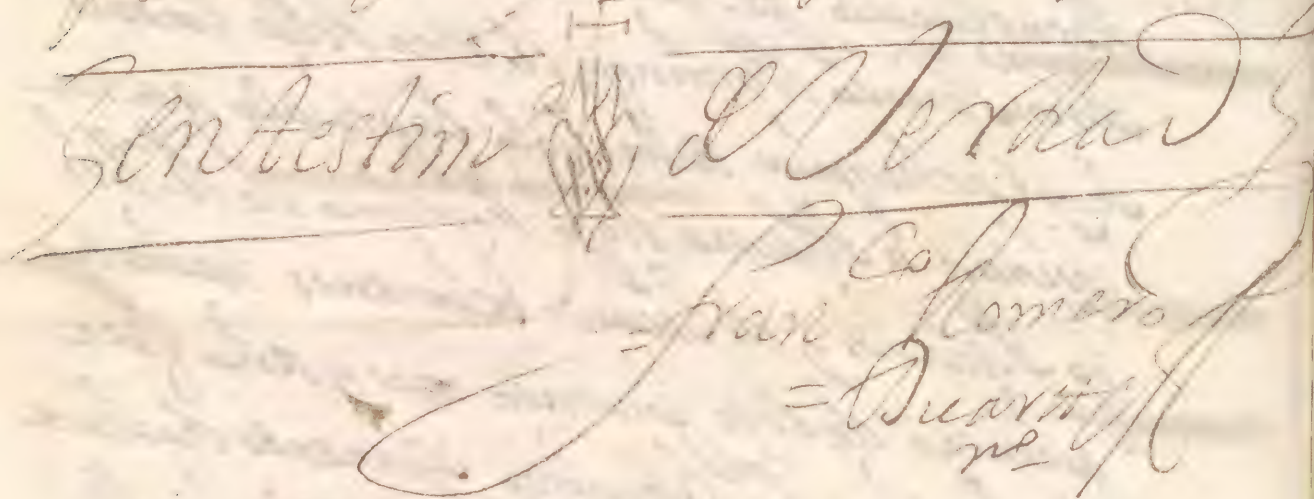 en testimo de Verdad
Franco Romero
Duarte
no